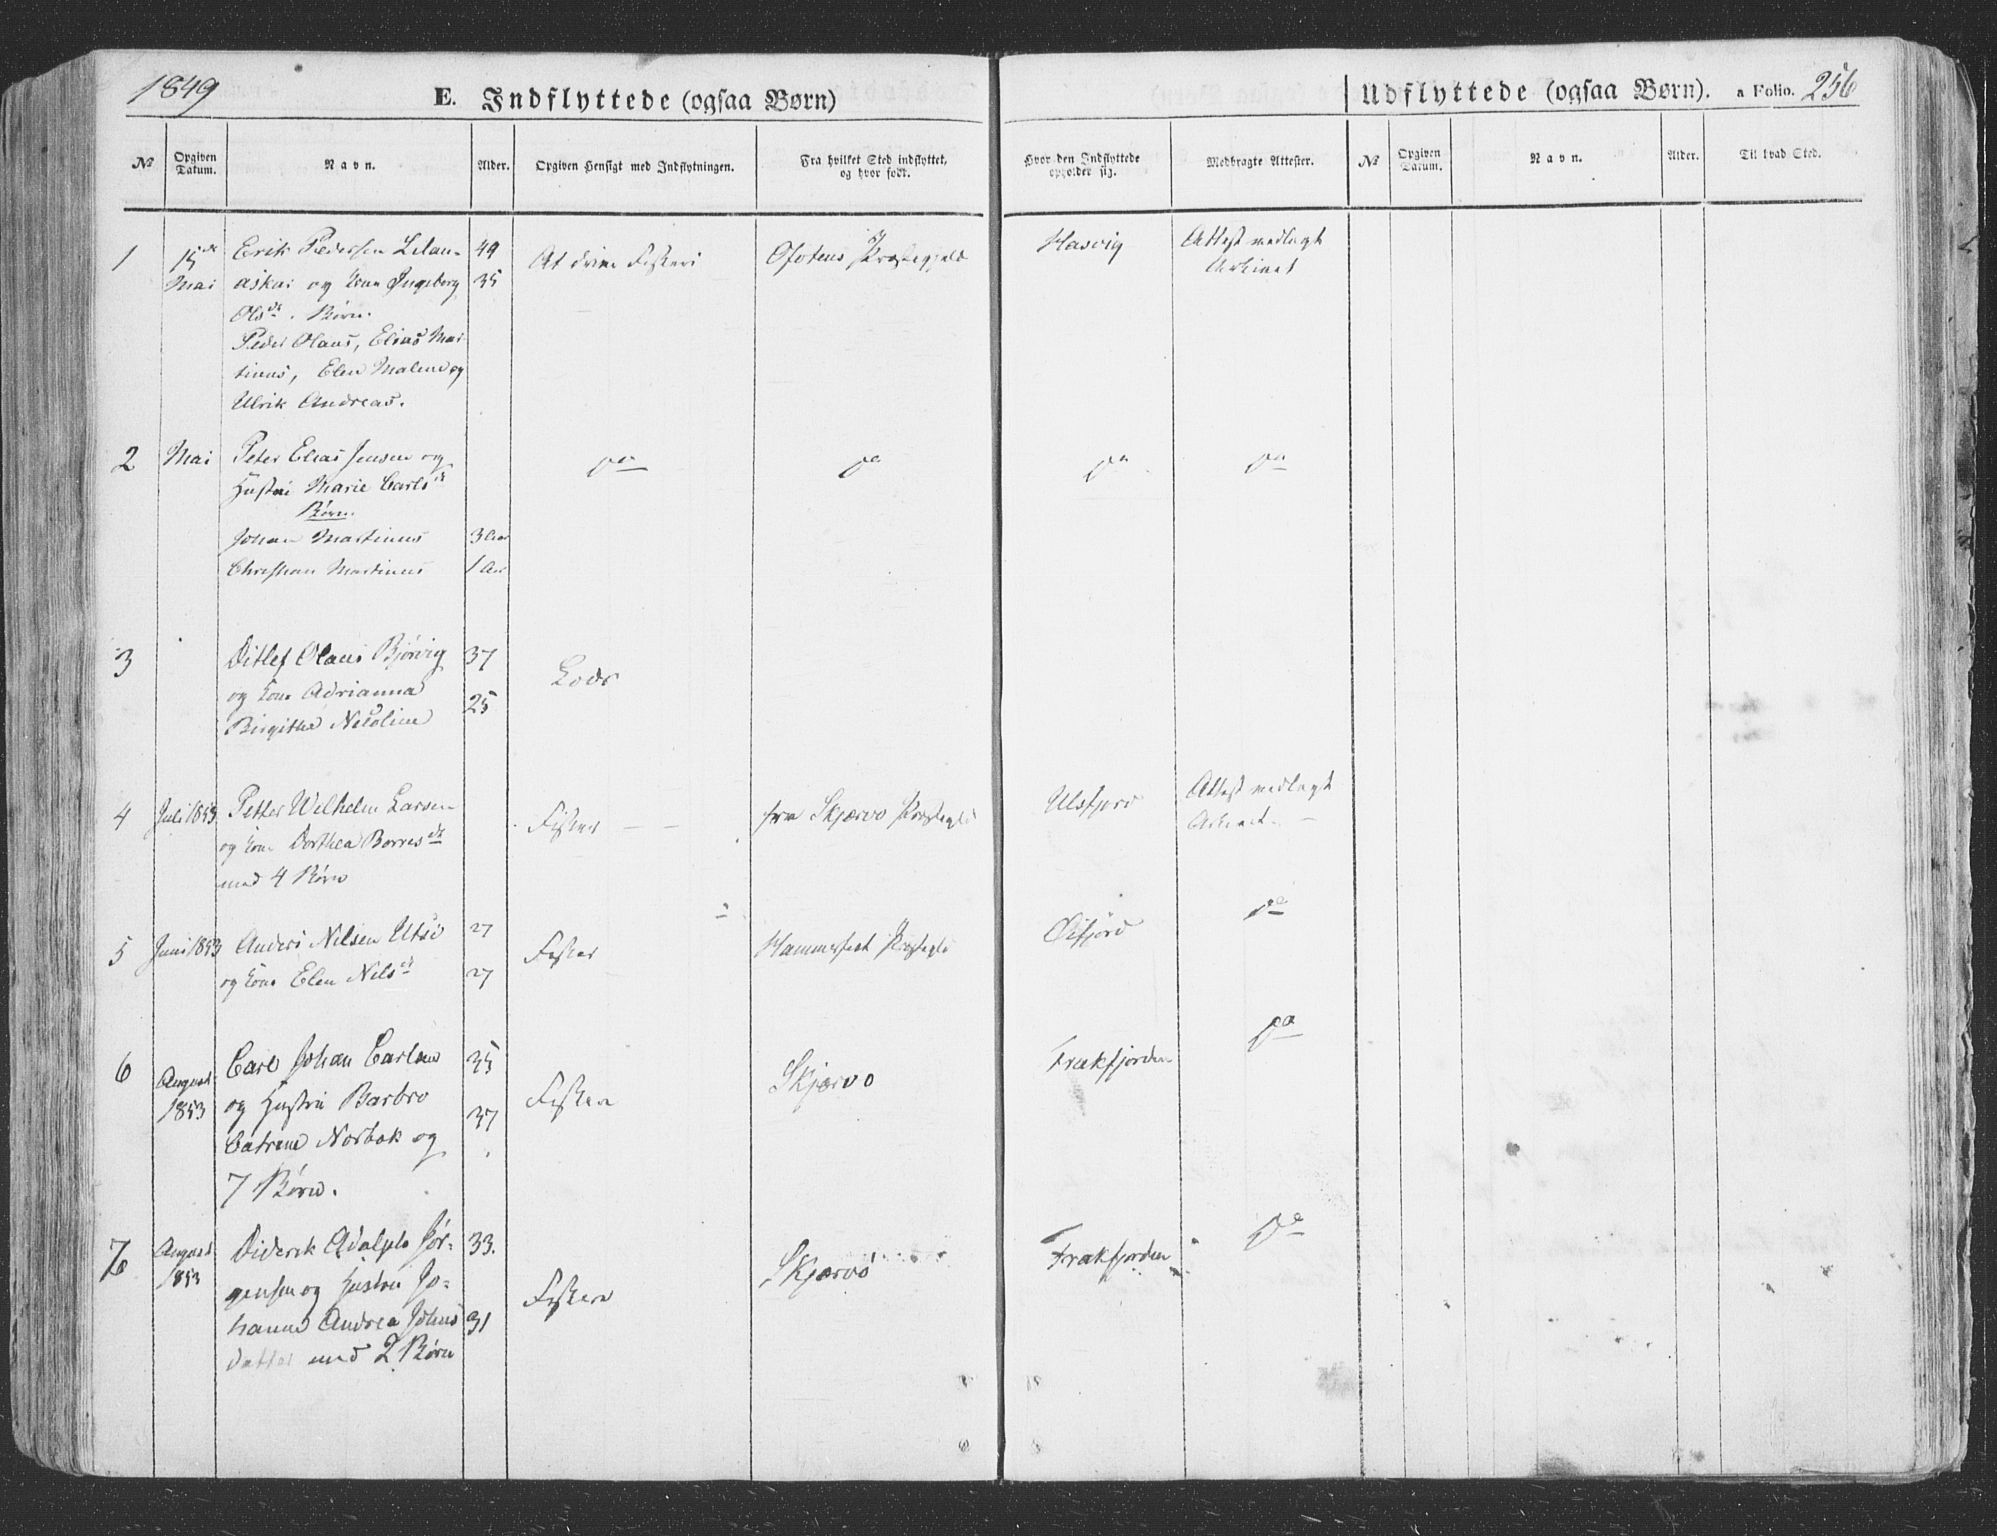 1849
E. Indflyttede (ogsaa Børn)
Udflyttede (ogsaa Børn). a Folio. 256
№ Opgiven Datum. Navn. Alder. Opgiven Hensigt med Indflytningen. Fra hvilket Sted indflyttet, og hvor født. Hvor den Indflyttede opholder sig. Medbragte Attester. № Opgiven Datum. Navn. Alder. Til hvad Sted.
1 15de Mai Erik Pedersen 49 At drive Fiskeri Ofotens Præstegjeld Hasvig Attest medlagt
og Kone Ingeborg 35 Arkivet
Olsdr. Børn.
Peder Olaus, Elias Mar-
tinus, Elen Malene og
Ulrik Andreas.
2 Mai Peter Elias Jensen og do do do do
Hustru Marie Carlsdr
Børn.
Johan Martinus 3 Aar
Christian Martinus 1 Aar
3 Ditlef Olaus Bjørvig 37 Lods
og Kone Adrianna 25
Birgitha Nicoline
4 Juli 1853 Petter Wilhelm Larsen Fisker fra Skjærvø Præstegld Ulsfjord Attest medlagt
og Kone Dorthea Borresdr Arkivet
med 4 Børn
5 Juni 1853 Anders Nilsen Utsi 27 Fisker Hammerfest Præstegld Øxfjord do
og Kone Elen Nilsdr 27
6 August 1853 Carl Johan Carlsen 35 Fisker Skjærvø Frakfjorden do
og Hustru Barbro 37
Catrine Norbak og
7 Børn.
7 August 1853 Diderik Adolph Jør- 33. Fisker Skjærvø Frakfjorden do
gensen og Hustru Jo-
hanne Andrea Johns 31
datter med 2 Børn